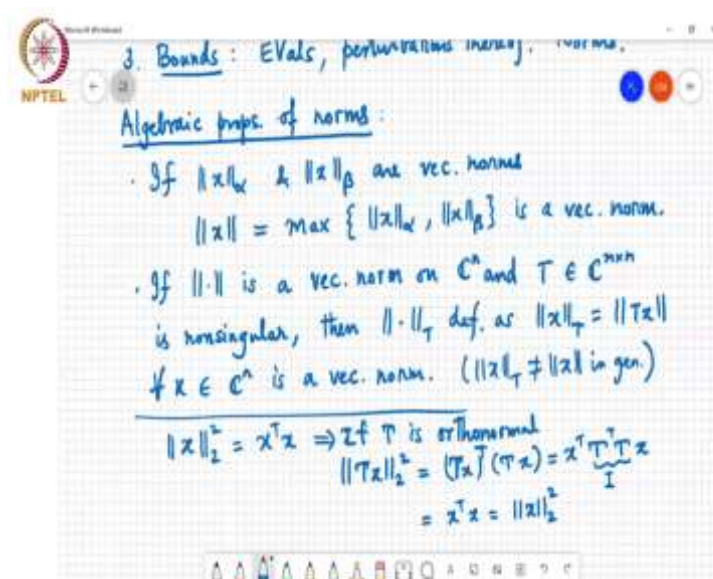 NPTEL
3. Bounds : EVals, perturbations theory. Norms.
Algebraic props. of norms :
· If ||x||_α & ||x||_β are vec. norms
||x|| = max { ||x||_α , ||x||_β } is a vec. norm.
· If ||·|| is a vec. norm on ℂⁿ and T ∈ ℂⁿˣⁿ
is nonsingular, then ||·||_T def. as ||x||_T = ||Tx||
∀ x ∈ ℂⁿ is a vec. norm. (||x||_T ≠ ||x|| in gen.)
||x||₂² = xᵀx ⇒ If T is orthonormal
||Tx||₂² = (Tx)ᵀ(Tx) = xᵀTᵀTx
I
= xᵀx = ||x||₂²